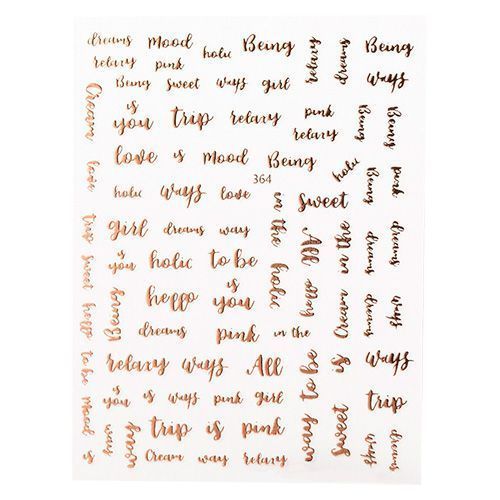 dreams Mood holic Being relaxy dreams Being
relaxy pink
Being sweet ways girl ways
Cream is you trip relaxy pink relaxy Being Being
love is Mood Being holic Being pink
love holic ways love 364 sweet
trip girl dreams way in the holic All in the dreams dreams
sweet is you holic to be
heppo Beeuy heppo is you heppo Cream dreams ways
dreams pink in the
to be relaxy ways All way to be is ways
is you is ways pink girl sweet trip
Mood is way trip is pink
Cream way relaxy ways dreams